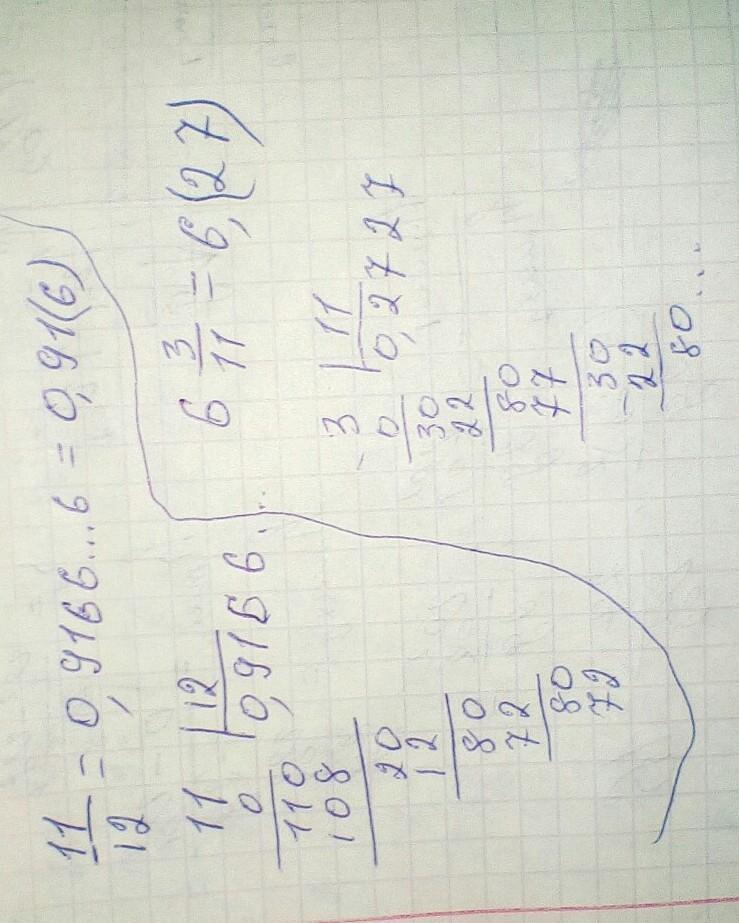 11/12 = 0,9166...6 = 0,91(6)
11 | 12
0 | 0,9166...
110
108
20
12
80
72
80
72
6 3/11 = 6,(27)
- 3 | 11
0 | 0,2727
30
22
80
77
- 30
22
80 ...